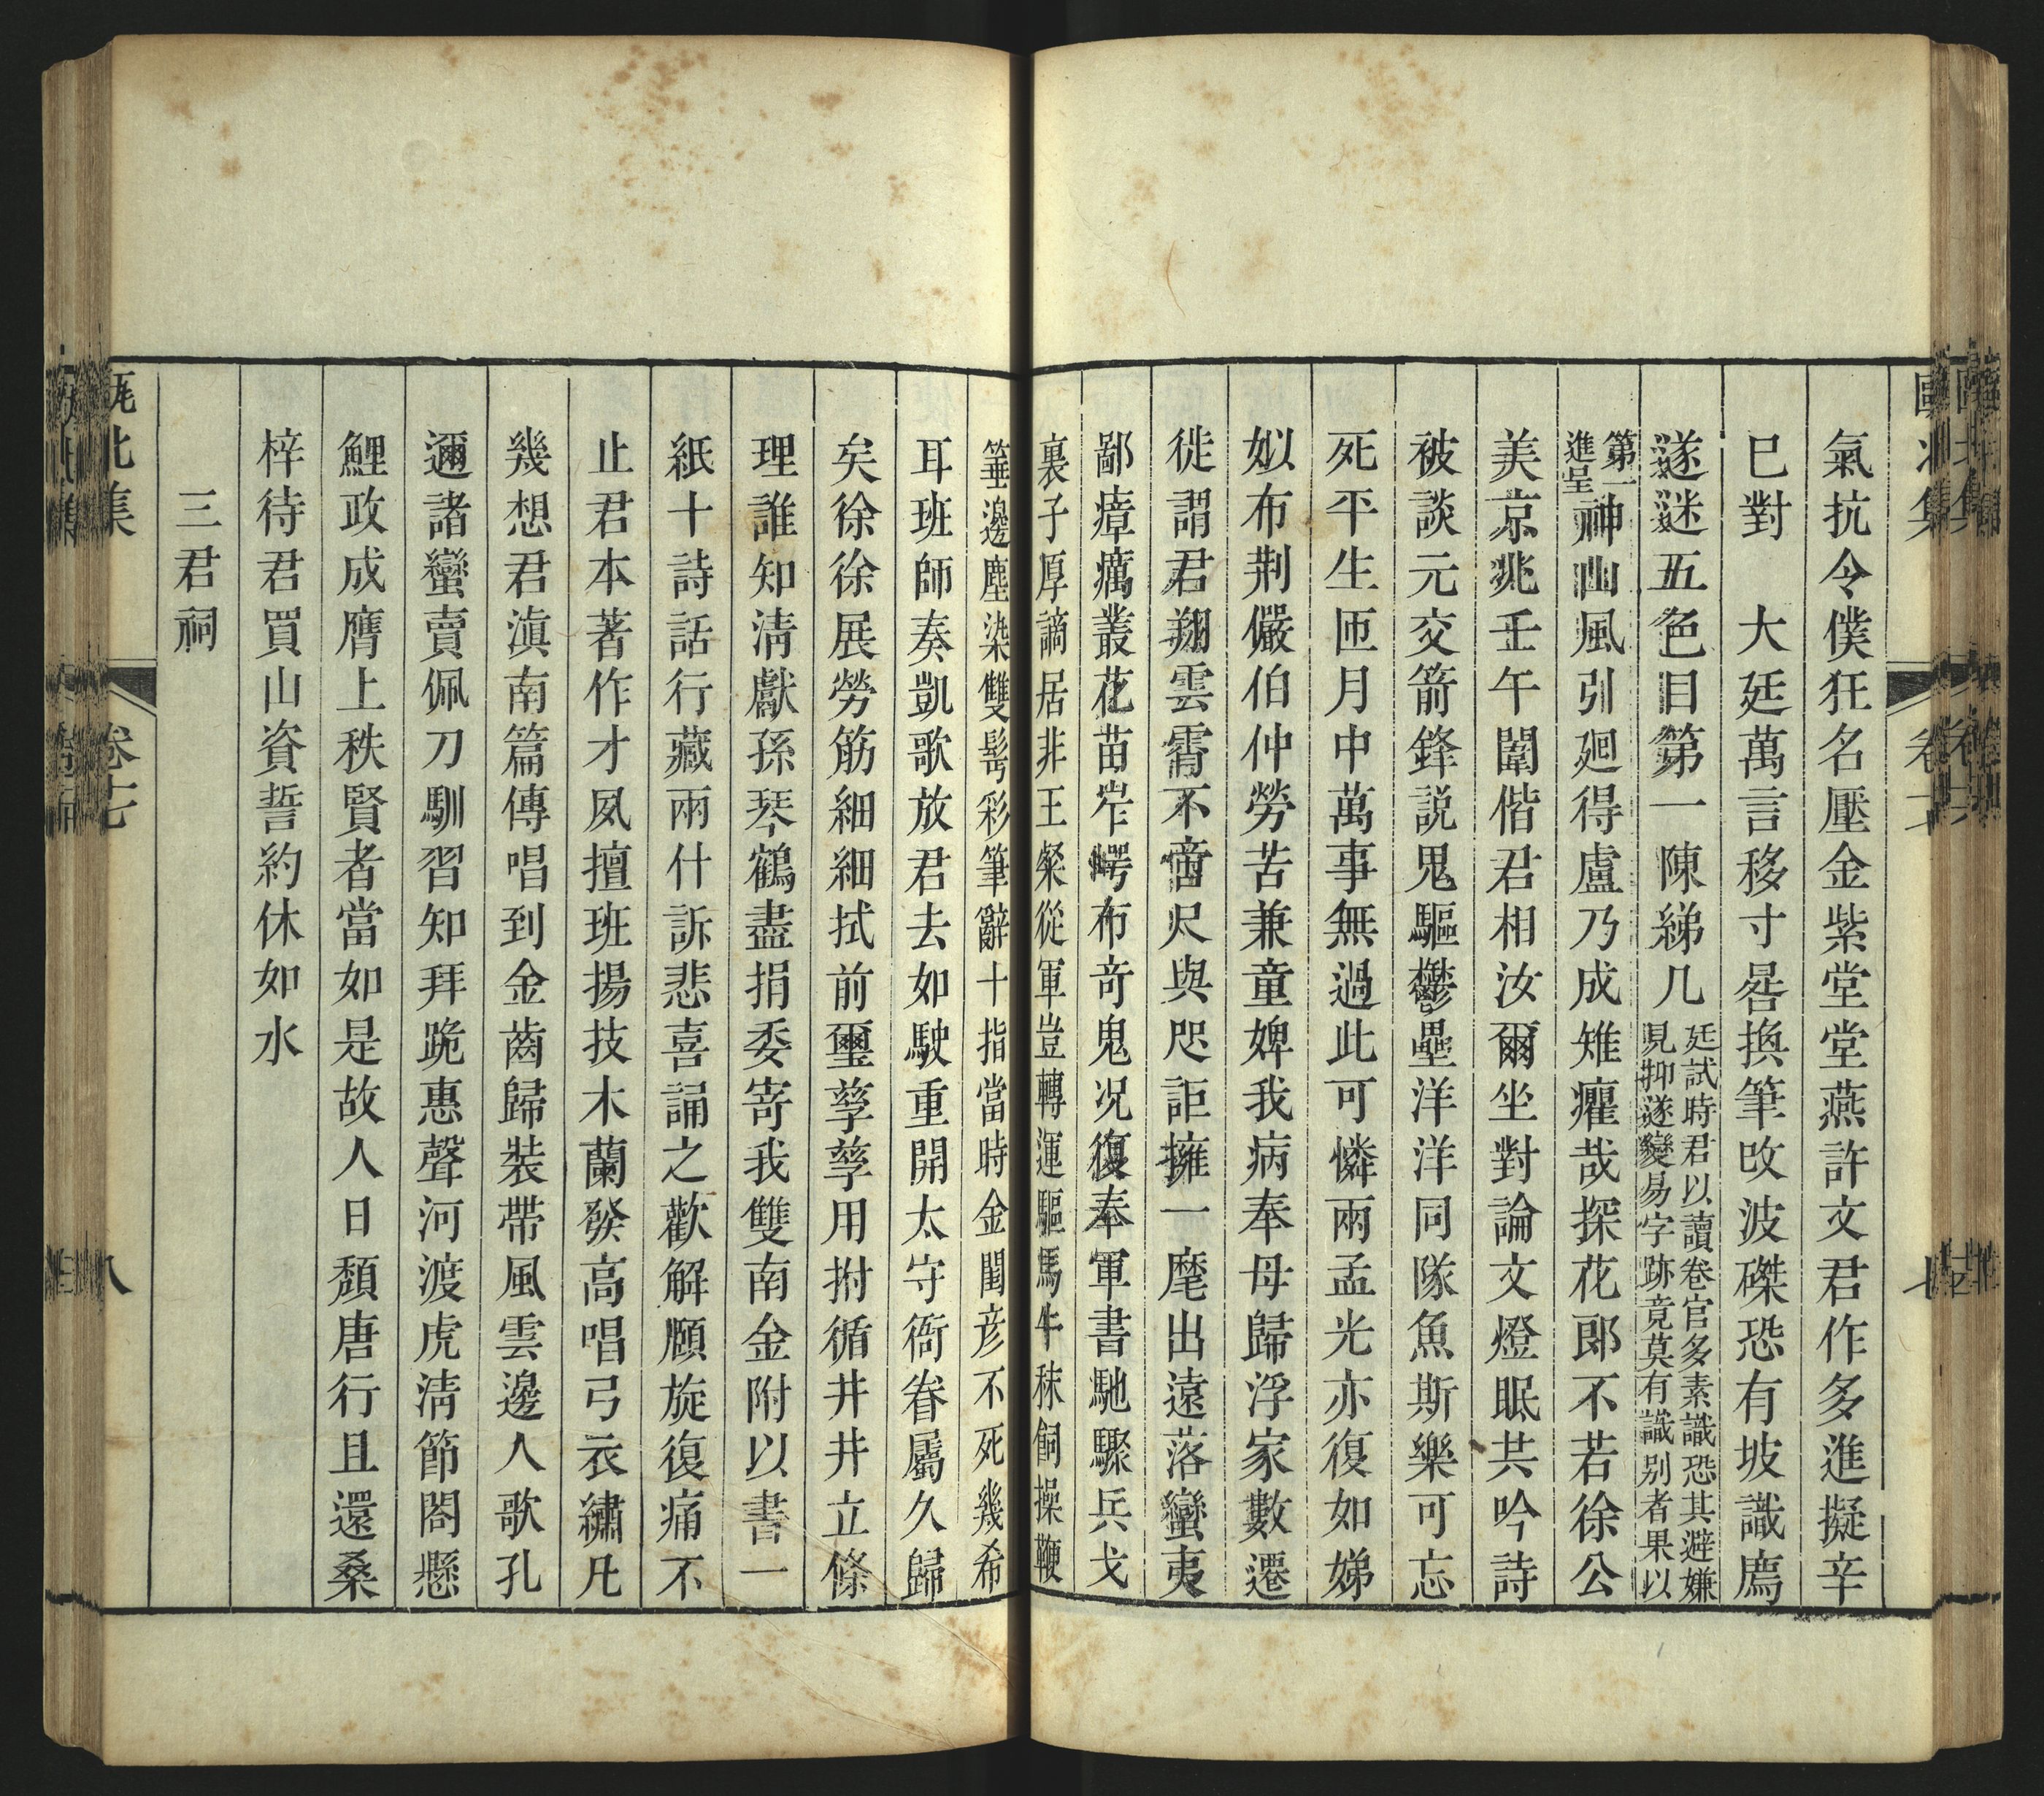 氣抗令僕狂名壓金紫堂堂燕許文君作多進擬辛
巳對　大廷萬言移寸晷換筆改波磔恐有坡識廌
遂迷五色目第一陳綈几廷試時君以讀卷官多素識恐其避嫌見抑遂變易字跡竟莫有識别者果以
第一進呈神山風引廻得盧乃成雉癯哉探花郎不若徐公
美京兆壬午闈偕君相汝爾坐對論文燈眠共吟詩
被談元交箭鋒説鬼驅鬱壘洋洋同隊魚斯樂可忘
死平生匝月中萬事無過此可憐兩孟光亦復如娣
姒布荆儼伯仲勞苦兼童婢我病奉母歸浮家數遷
徙謂君翔雲霄不啻尺與咫詎擁一麾出遠落蠻夷
鄙瘴癘叢花苗岝崿布奇鬼况復奉軍書馳驟兵戈
裏子厚謫居非王粲從軍豈轉運驅馬牛秣飼操鞭
箠邊塵染雙髩彩筆辭十指當時金閨彦不死幾希
耳班師奏凱歌放君去如駛重開太守衙眷屬久歸
矣徐徐展勞筋細細拭前璽孳孳用拊循井井立條
理誰知清獻孫琴鶴盡捐委寄我雙南金附以書一
紙十詩話行藏兩什訴悲喜誦之歡解頥旋復痛不
止君本著作才夙擅班揚技木蘭發高唱弓衣繡凡
幾想君滇南篇傳唱到金齒歸裝帶風雲邊人歌孔
邇諸蠻賣佩刀馴習知拜跪惠聲河渡虎清節閤懸
鯉政成膺上秩賢者當如是故人日頽唐行且還桑
梓待君買山資誓約休如水
三君祠
甌北集
卷十七
八